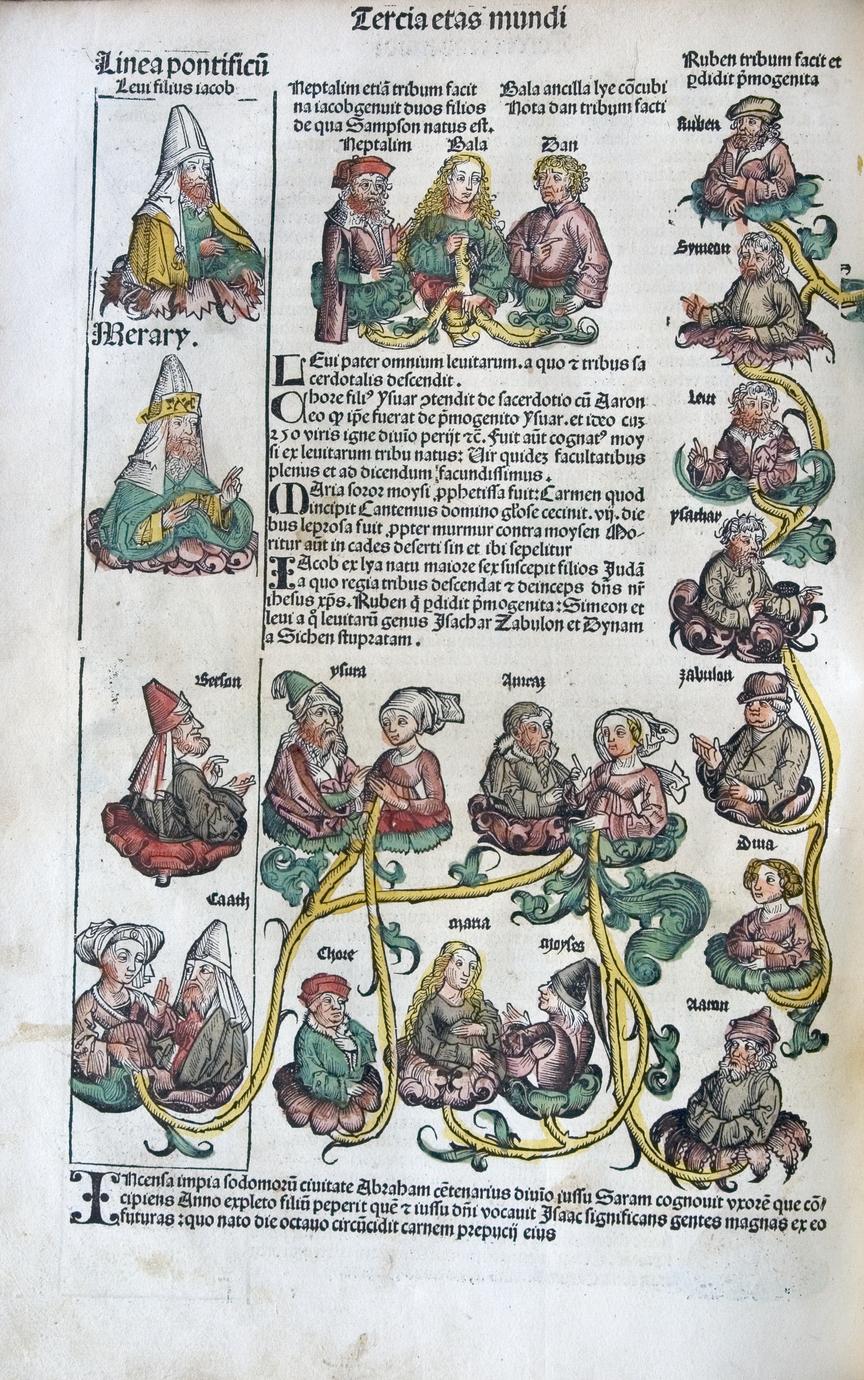 Tercia etas mundi
Linea pontificũ
Leui filius iacob
Neptalim etiã tribum facit
na iacob genuit duos filios
de qua Sampson natus est.
Bala ancilla lye cõcubi
Nota dan tribum facti
Ruben tribum facit et
ꝑdidit p̃mogenita
Neptalim
Bala
Dan
Ruben
Symeon
Leui
ysachar
zabulon
Dina
Aaron
Merary.
LEui pater omnium leuitarum. a quo ⁊ tribus sa
cerdotalis descendit.
Chore filiꝰ Ysuar ꝯtendit de sacerdotio cũ Aaron
eo ꝙ ip̃e fuerat de p̃mogenito Ysuar. et ideo cuꝫ
250 viris igne diuĩo perijt ⁊c̃. Fuit aũt cognatꝰ moy
si ex leuitarum tribu natus: Vir quideꝫ facultatibus
plenus et ad dicendum facundissimus.
MAria soror moysi ꝓphetissa fuit: Carmen quod
incipit Cantemus domino glose cecinit. vij. die
bus leprosa fuit ꝓpter murmur contra moysen Mo-
ritur aũt in cades deserti sin et ibi sepelitur
IAcob ex lya natu maiore sex suscepit filios Judã
a quo regia tribus descendat ⁊ deinceps dñs nr̃
ihesus xp̃s. Ruben q̃ ꝑdidit p̃mogenita: Simeon et
leui a q̊ leuitarũ genus Isachar Zabulon et Dynam
a Sichen stupratam.
Gerson
ysura
Amraꝫ
Caath
Chore
maria
moyses
INcensa impia sodomorũ ciuitate Abraham cẽtenarius diuĩo iussu Saram cognouit vxorẽ que cõ/
cipiens Anno expleto filiũ peperit quẽ ⁊ iussu dñi vocauit Isaac significans gentes magnas ex eo
futuras: quo nato die octauo circũcidit carnem prepucij eius